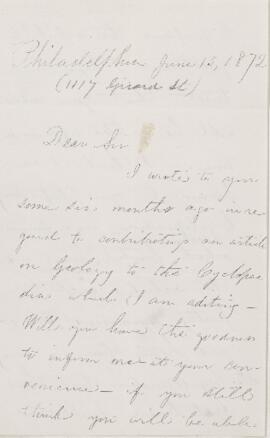 Philadelphia June 13, 1872
(1117 Girard St)
Dear Sir
I wrote to you
some six months ago in re-
gard to contributing an article
on Geology to the Cyclopae
dia which I am editing –
Will you have the goodness
to inform me at your con-
venience – if you still
think you will be able